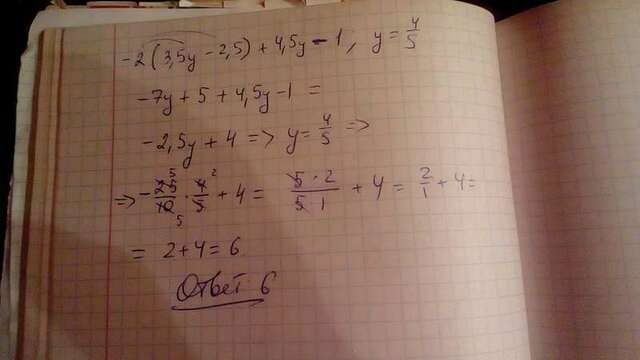 -2(3,5y - 2,5) + 4,5y - 1, y = 4/5
-7y + 5 + 4,5y - 1 =
-2,5y + 4 => y = 4/5 =>
=> - 25/10 · 4/5 + 4 = 5·2/5·1 + 4 = 2/1 + 4 =
= 2 + 4 = 6
Ответ 6